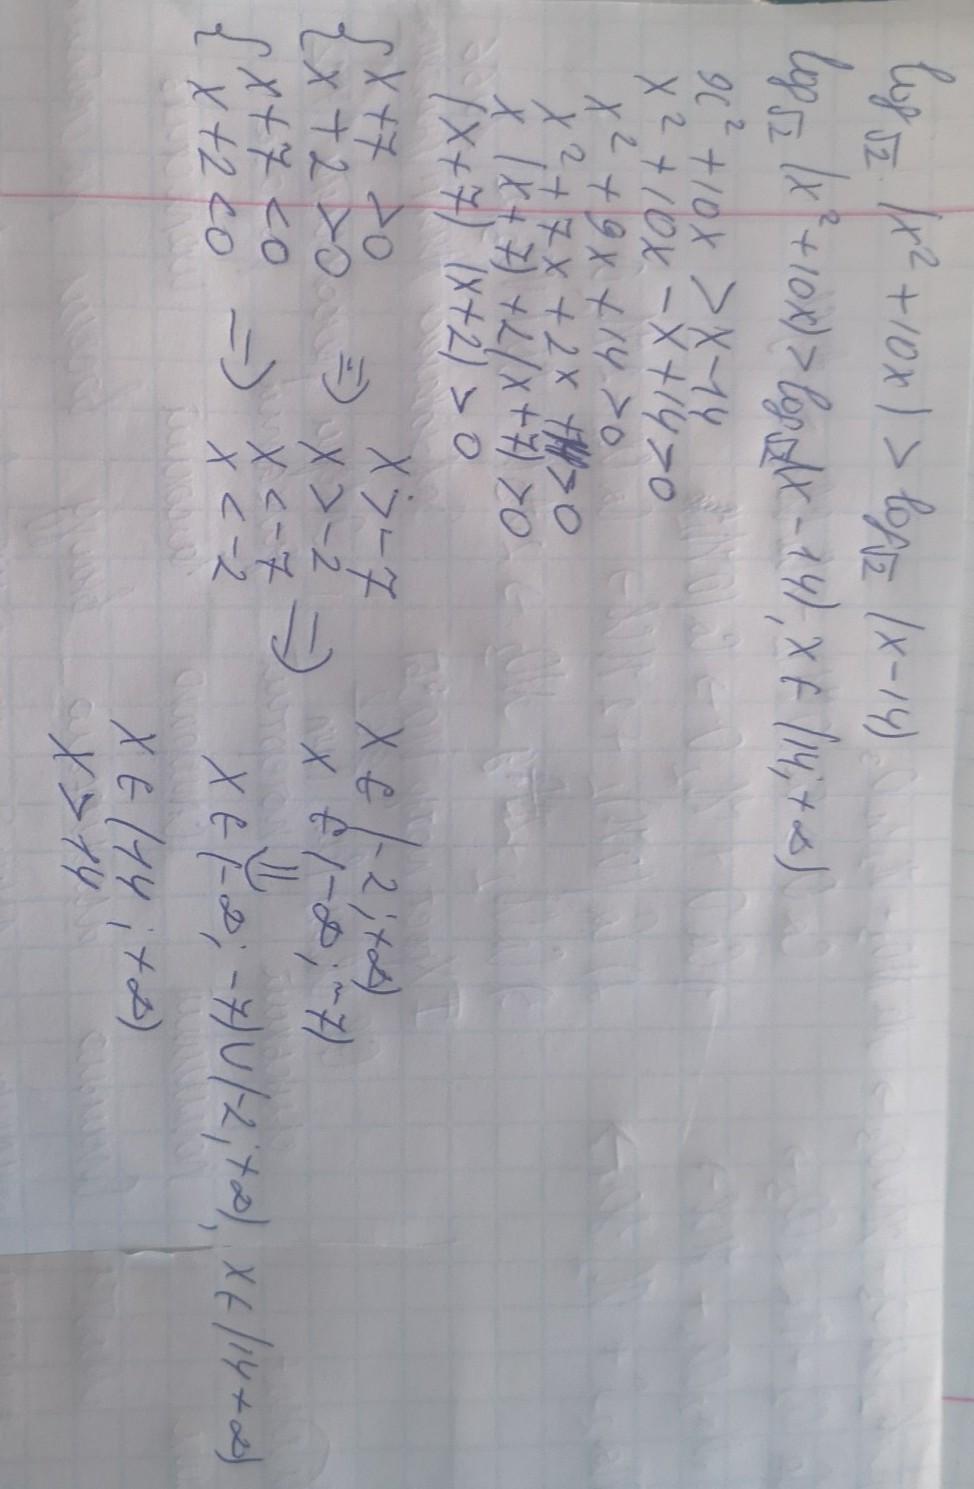 log√2 (x² + 10x) > log√2 (x-14)
log√2 (x² +10x) > log√2 (x-14), x ∈ (14; +∞)
x² +10x > x-14
x² +10x - x +14 > 0
x² + 9x + 14 > 0
x² + 7x + 2x + 14 > 0
x (x+7) + 2(x+7) > 0
(x+7) (x+2) > 0
{ x +7 > 0 ⇒ x > -7
{ x + 2 > 0 x > -2 x ∈ (-2; +∞)
{ x+7 < 0 ⇒ x < -7 ⇒ x ∈ (-∞; -7)
{ x + 2 < 0 x < -2
⇓
x ∈ (-∞; -7) ∪ (-2; +∞), x ∈ (14 +∞)
x ∈ (14; +∞)
x > 14